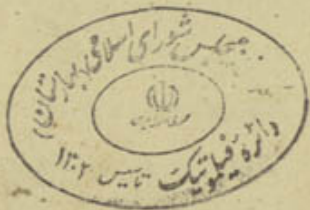 مجلس شورای اسلامی (بهارستان)
دائره فیلموتیک تاسیس ۱۳۰۲